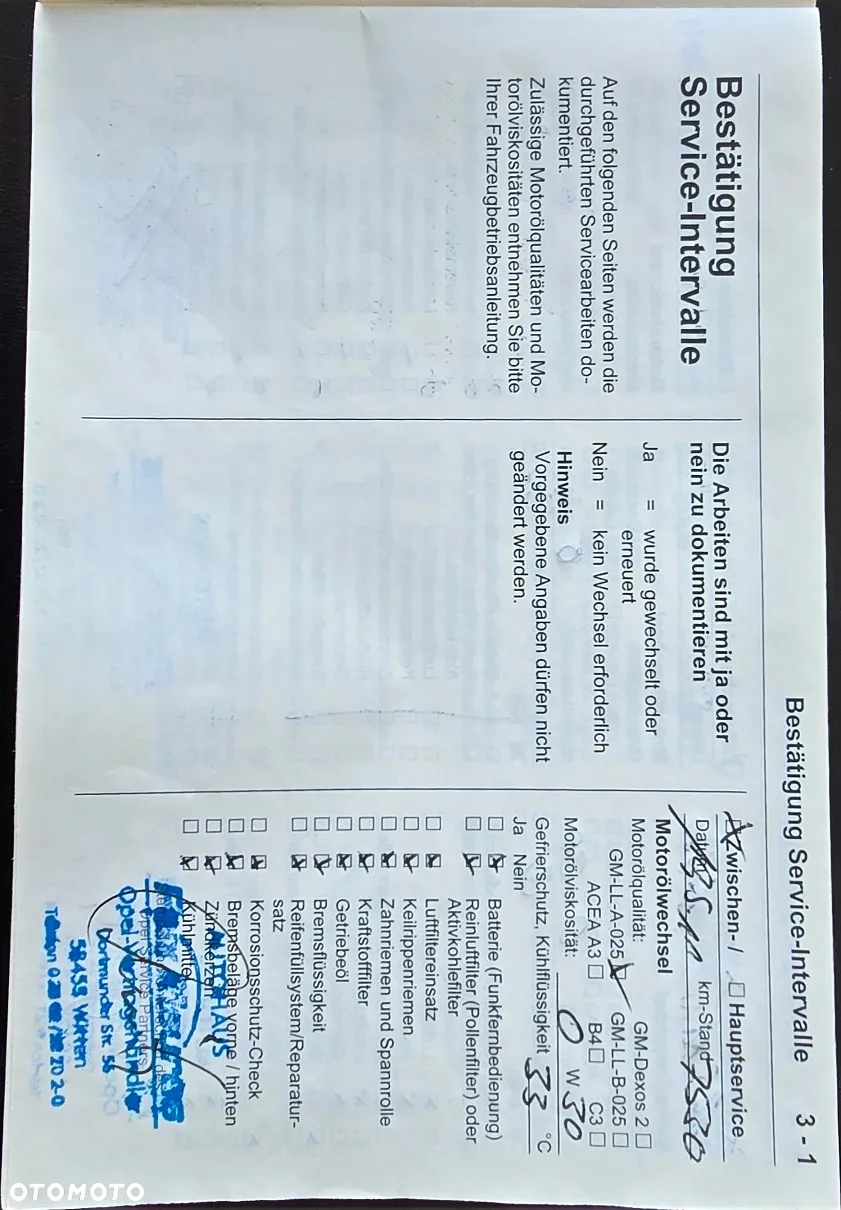 Bestätigung Service-Intervalle 3 - 1
Bestätigung
Service-Intervalle
Auf den folgenden Seiten werden die
durchgeführten Servicearbeiten do-
kumentiert.
Zulässige Motorölqualitäten und Mo-
torölviskositäten entnehmen Sie bitte
Ihrer Fahrzeugbetriebsanleitung.
Die Arbeiten sind mit ja oder
nein zu dokumentieren
Ja = wurde gewechselt oder
erneuert
Nein = kein Wechsel erforderlich
Hinweis
Vorgegebene Angaben dürfen nicht
geändert werden.
Zwischen- / Hauptservice
km-Stand
Motorölwechsel
Motorölqualität: GM-Dexos 2
GM-LL-A-025 GM-LL-B-025
ACEA A3 B4 C3
Motorölviskosität: 0 W 30
Gefrierschutz, Kühlflüssigkeit 33 °C
Ja Nein
Batterie (Funkfernbedienung)
Reinluftfilter (Pollenfilter) oder
Aktivkohlefilter
Luftfiltereinsatz
Keilrippenriemen
Zahnriemen und Spannrolle
Kraftstofffilter
Getriebeöl
Bremsflüssigkeit
Reifenfüllsystem/Reparatur-
satz
Korrosionsschutz-Check
Bremsbeläge vorne / hinten
Zündkerzen
Kühlmittel
AUTOHAUS
Opel Service Partners
Dortmunder Str. 55
58455 Witten
OTOMOTO